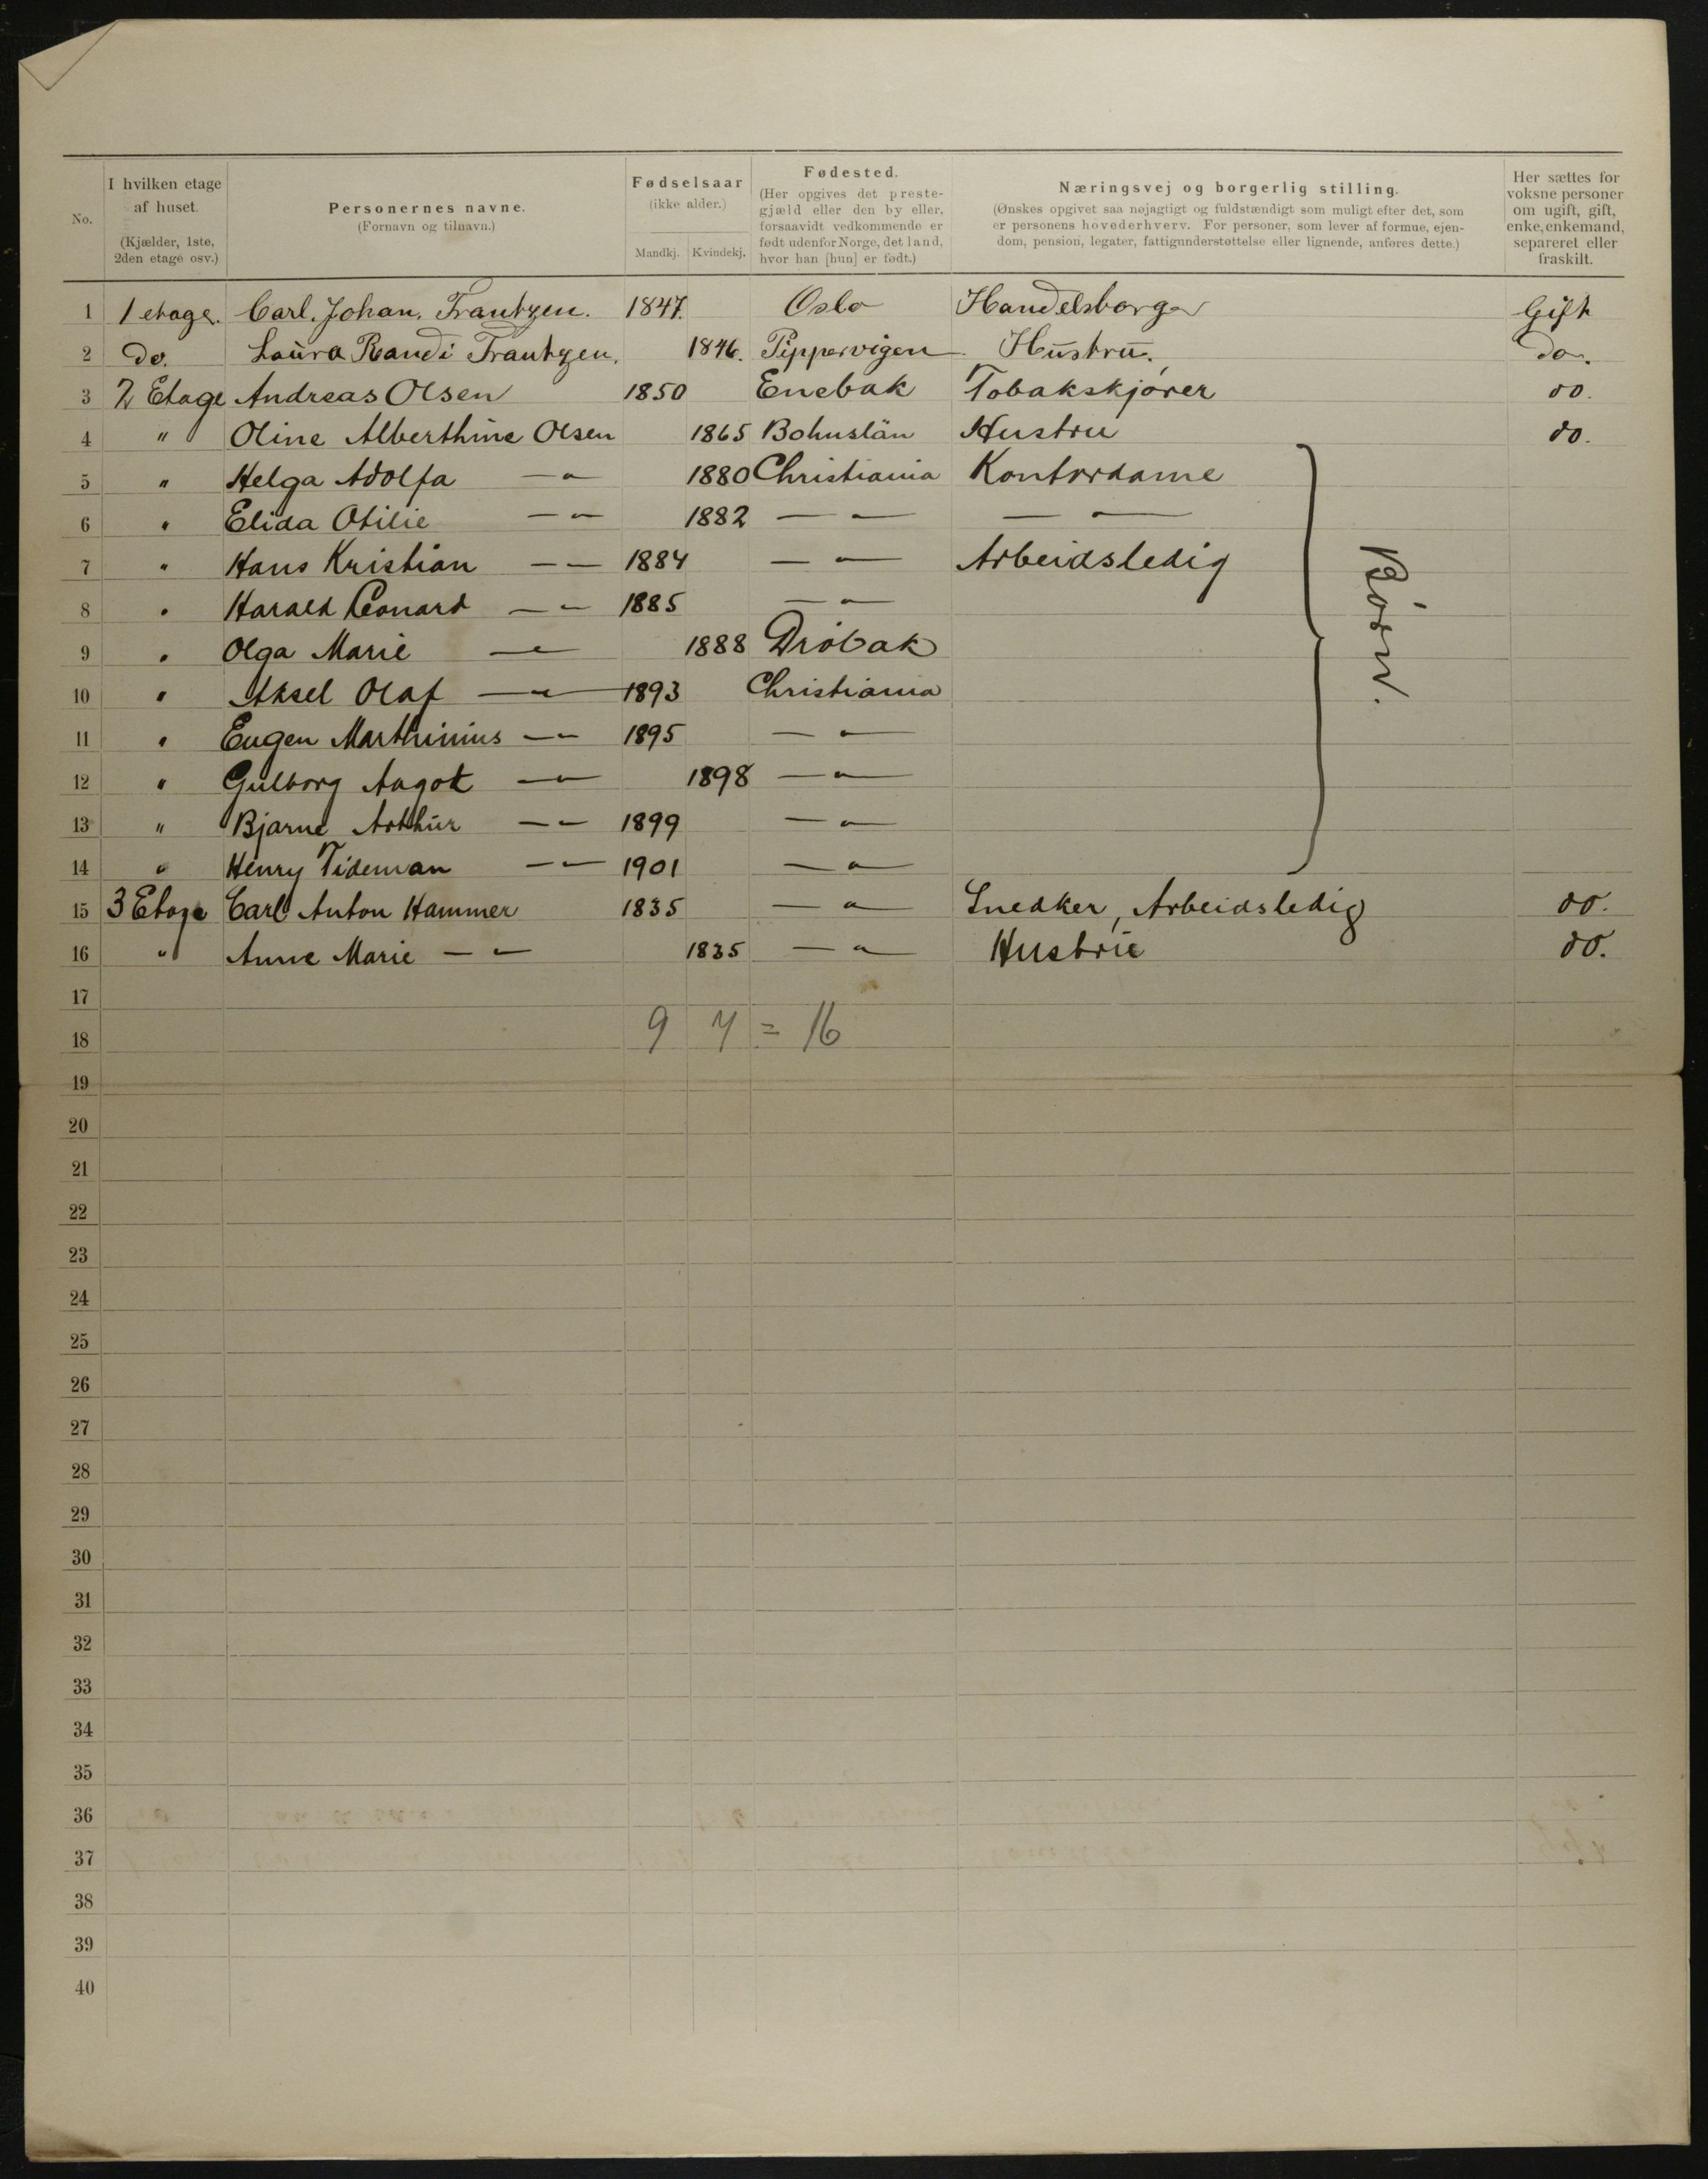 No.
I hvilken etage af huset. (Kjælder, 1ste, 2den etage osv.)
Personernes navne. (Fornavn og tilnavn.)
Fødselsaar (ikke alder.)
Mandkj. Kvindekj.
Fødested. (Her opgives det prestegjæld eller den by eller, forsaavidt vedkommende er født udenfor Norge, det land, hvor han [hun] er født.)
Næringsvej og borgerlig stilling.
(Ønskes opgivet saa nøjagtigt og fuldstændigt som muligt efter det, som er personens hovederhverv. For personer, som lever af formue, ejendom, pension, legater, fattigunderstøttelse eller lignende, anføres dette.)
Her sættes for voksne personer om ugift, gift, enke, enkemand, separeret eller fraskilt.
1 1 etage. Carl. Johan. Frantzen. 1847. Oslo Handelsborger Gift
2 do. Laura Randi Frantzen. 1846. Pippervigen Hustru. do.
3 2 Etage Andreas Olsen 1850 Enebak Tobakskjører do.
4 " Oline Alberthine Olsen 1865 Bohuslän Hustru do.
5 " Helga Adolfa — " — 1880 Christiania Kontordame
6 " Elida Otilie — " — 1882 — " — — " —
7 " Hans Kristian — " — 1884 — " — Arbeidsledig
8 " Harald Leonard — " — 1885 — " —
9 " Olga Marie — " — 1888 Drøbak
10 " Aksel Olaf — " — 1893 Christiania
11 " Eugen Marthinius — " — 1895 — " —
12 " Gulborg Aagot — " — 1898 — " —
13 " Bjarne Arthur — " — 1899 — " —
14 " Henry Tideman — " — 1901 — " —
Børn.
15 3 Etage Carl Anton Hammer 1835 — " — Snedker, Arbeidsledig do.
16 " Anne Marie — " — 1835 — " — Hustru do.
17
18 9 7 = 16
19
20
21
22
23
24
25
26
27
28
29
30
31
32
33
34
35
36
37
38
39
40